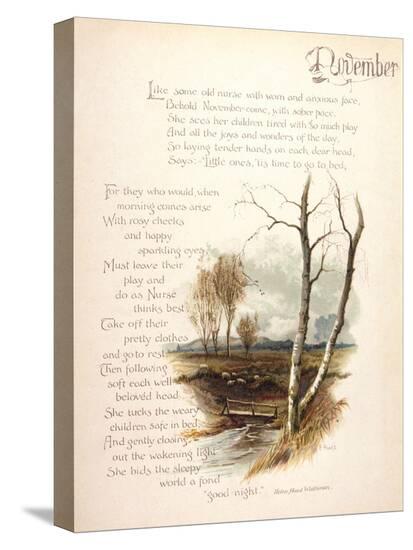 November
Like some old nurse with worn and anxious face,
Behold November come, with sober pace.
She sees her children tired with so much play
And all the joys and wonders of the day,
So laying tender hands on each dear head,
Says:-"Little ones, 'tis time to go to bed,
For they who would, when
morning comes arise
With rosy cheeks
and happy
sparkling eyes
Must leave their
play and
do as Nurse
thinks best
Take off their
pretty clothes
and go to rest
Then following
soft each well
belovèd head
She tucks the weary
children safe in bed,
And gently closing
out the wakening light
She bids the sleepy
world a fond
"good-night."